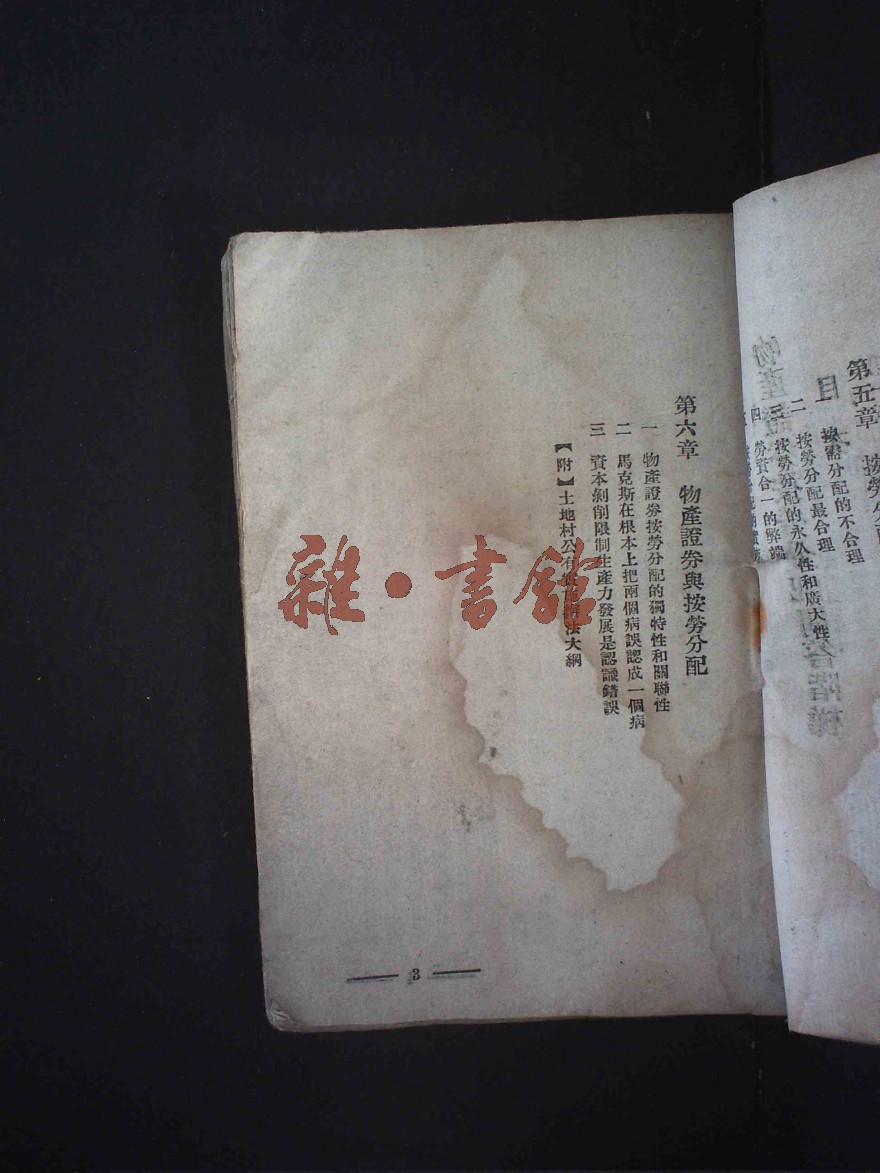 第五章 按勞分配
一 按需分配的不合理
二 按勞分配最合理
三 按勞分配的永久性和廣大性
四 勞資合一的弊端
第六章 物產證券與按勞分配
一 物產證券按勞分配的獨特性和關聯性
二 馬克斯在根本上把兩個病誤認成一個病
三 資本剝削限制生產力發展是認識錯誤
【附】土地村公有實施辦法大綱
3
雜·書館